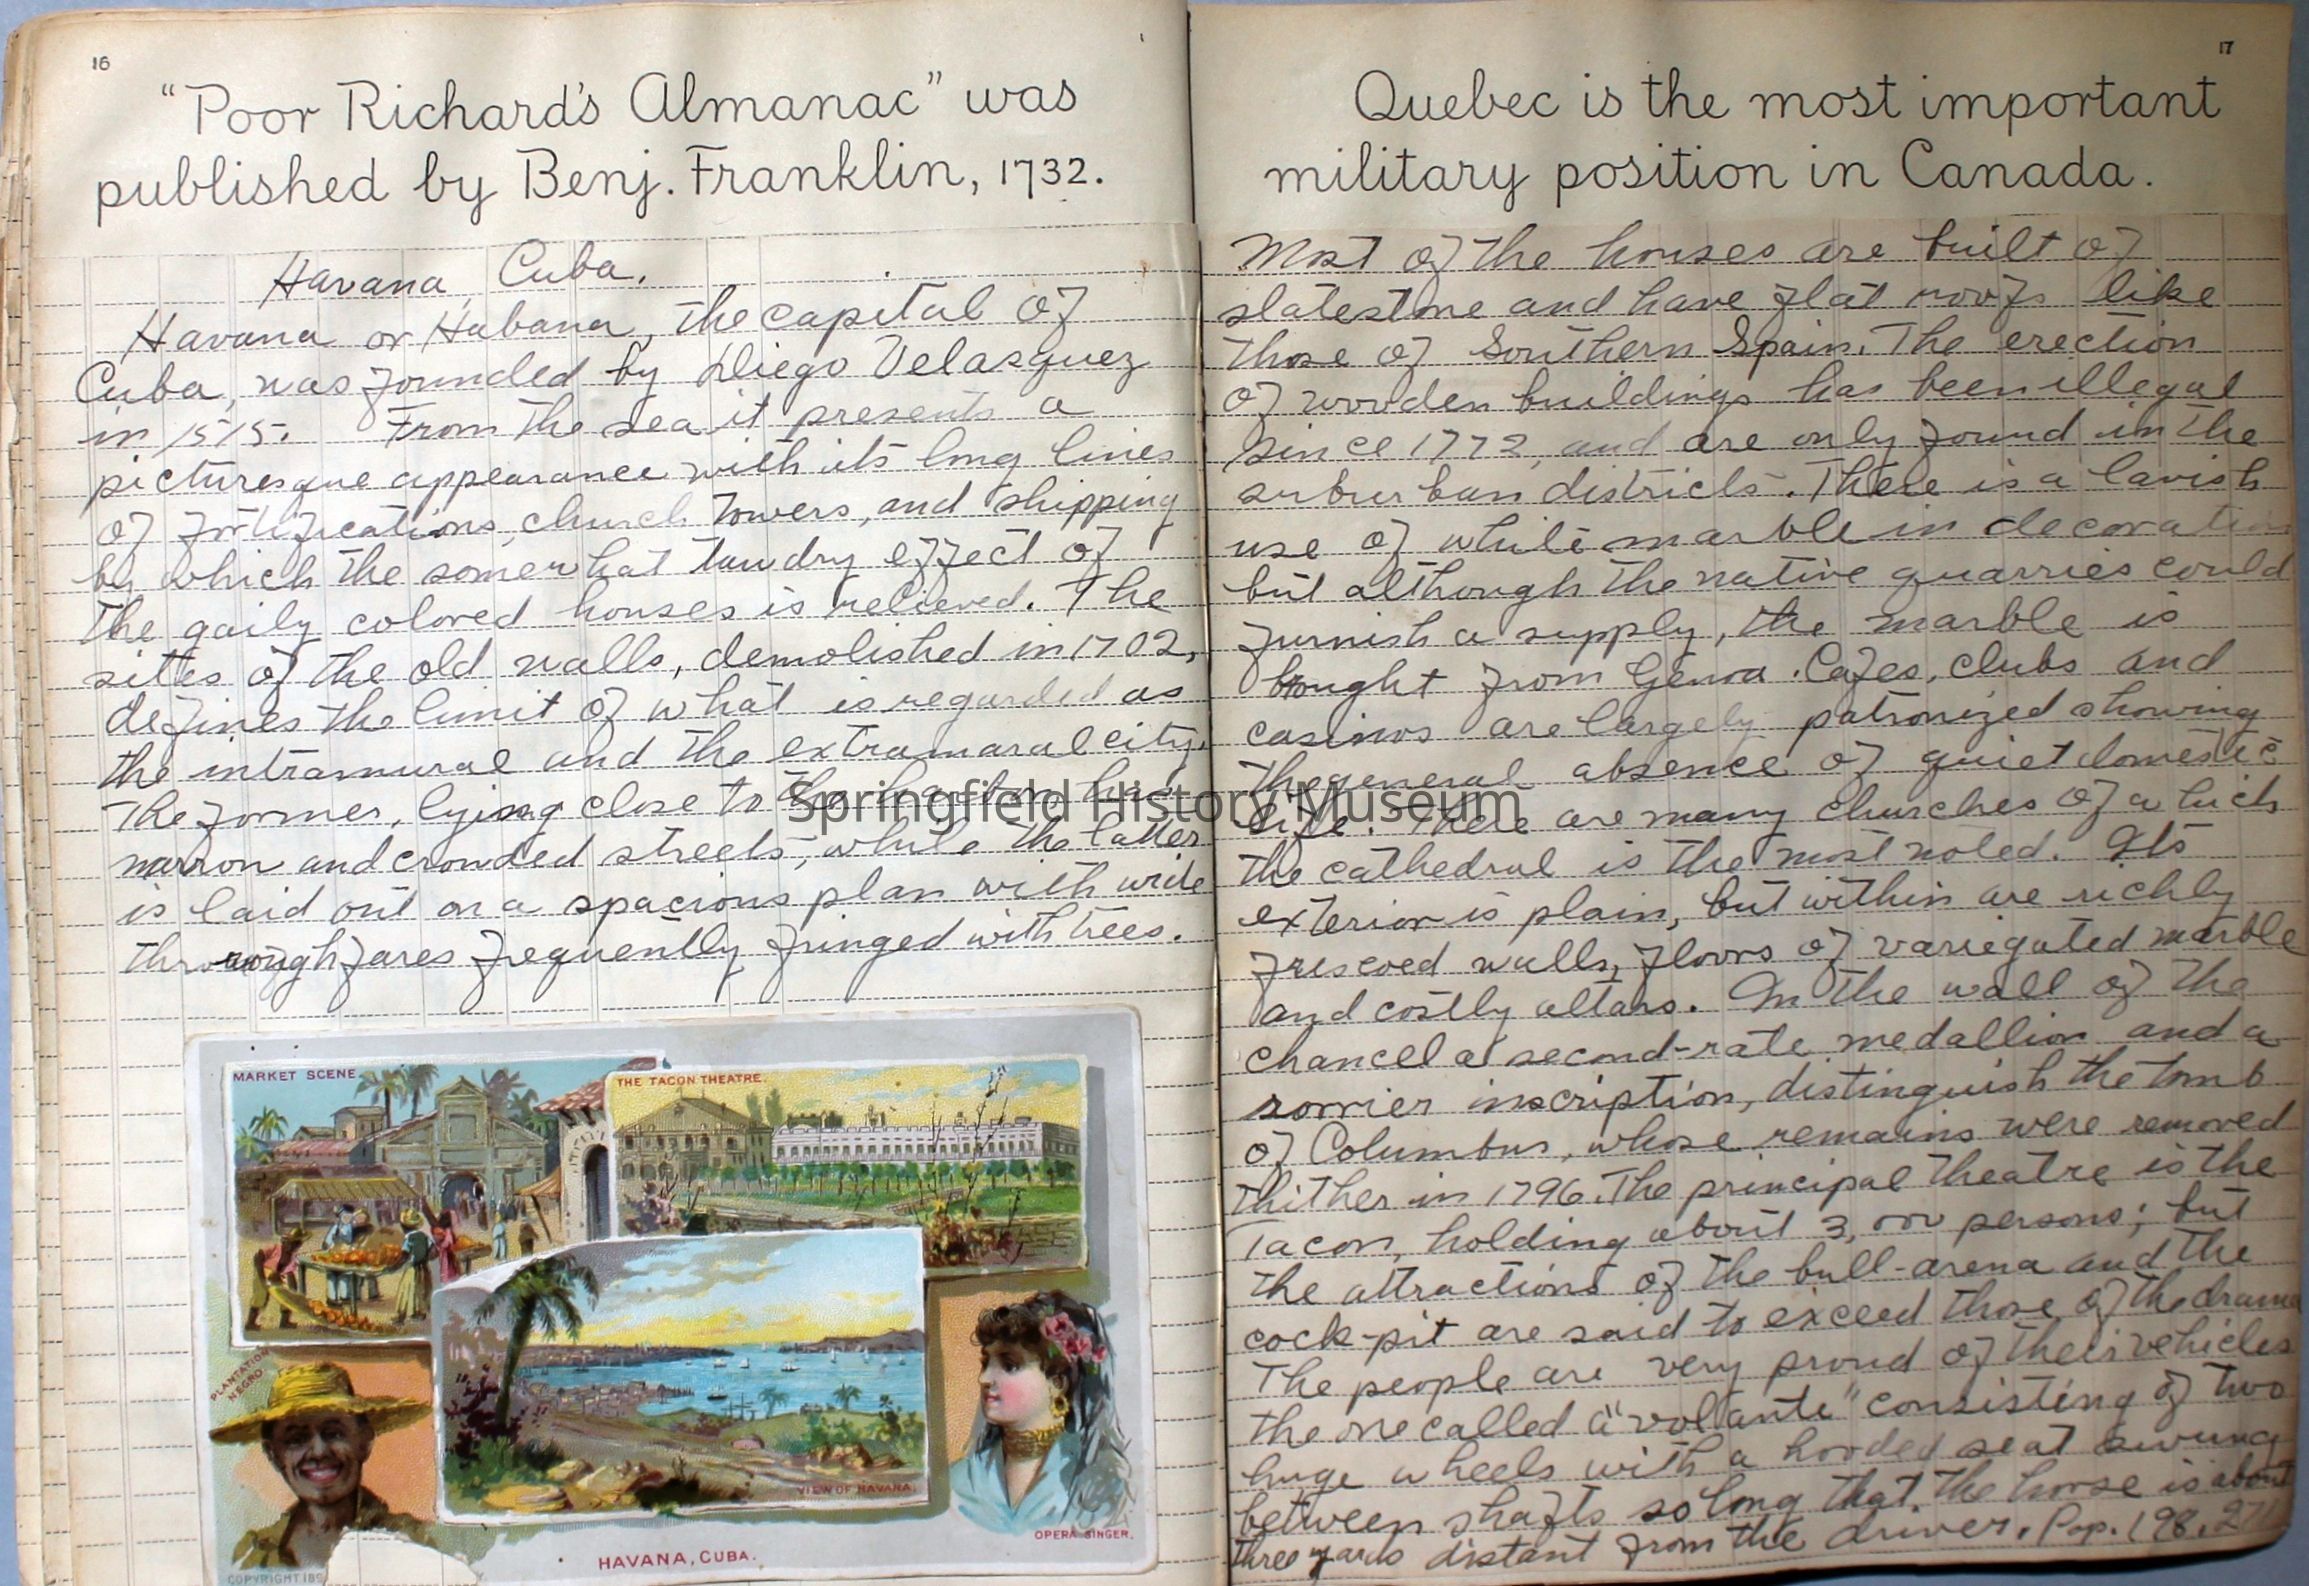 16
"Poor Richard's Almanac" was
published by Benj. Franklin, 1732.
Havana, Cuba.
Havana or Habana, the capital of
Cuba, was founded by Diego Velasquez
in 1515. From the sea it presents a
picturesque appearance with its long lines
of fortifications, church towers, and shipping
by which the somewhat tawdry effect of
the gaily colored houses is relieved. The
sites of the old walls, demolished in 1702,
defines the limit of what is regarded as
the intramural and the extramaral city.
The former, lying close to the harbor, has
narrow and crowded streets, while the latter
is laid out on a spacious plan with wide
thoroughfares frequently fringed with trees.
MARKET SCENE
THE TACON THEATRE.
PLANTATION
NEGRO.
VIEW OF HAVANA.
OPERA SINGER.
HAVANA, CUBA.
COPYRIGHT 189
17
Quebec is the most important
military position in Canada.
Most of the houses are built of
slatestone and have flat roofs like
those of Southern Spain. The erection
of wooden buildings has been illegal
since 1772, and are only found in the
suburban districts. There is a lavish
use of white marble in decoration
but although the native quarries could
furnish a supply, the marble is
brought from Genoa. Cafes, clubs and
casinos are largely patronized showing
the general absence of quiet domestic
life. There are many churches of which
the cathedral is the most noted. Its
exterior is plain, but within are richly
frescoed walls, floors of variegated marble
and costly altars. In the wall of the
chancel a second-rate medallion and a
sorrier inscription, distinguish the tomb
of Columbus, whose remains were removed
thither in 1796. The principal theatre is the
Tacon, holding about 3,000 persons; but
the attractions of the bull-arena and the
cock-pit are said to exceed those of the drama
The people are very proud of their vehicles
the one called a "volante" consisting of two
huge wheels with a hooded seat swung
between shafts so long that the horse is about
three yards distant from the driver. Pop. 198,271
Springfield History Museum